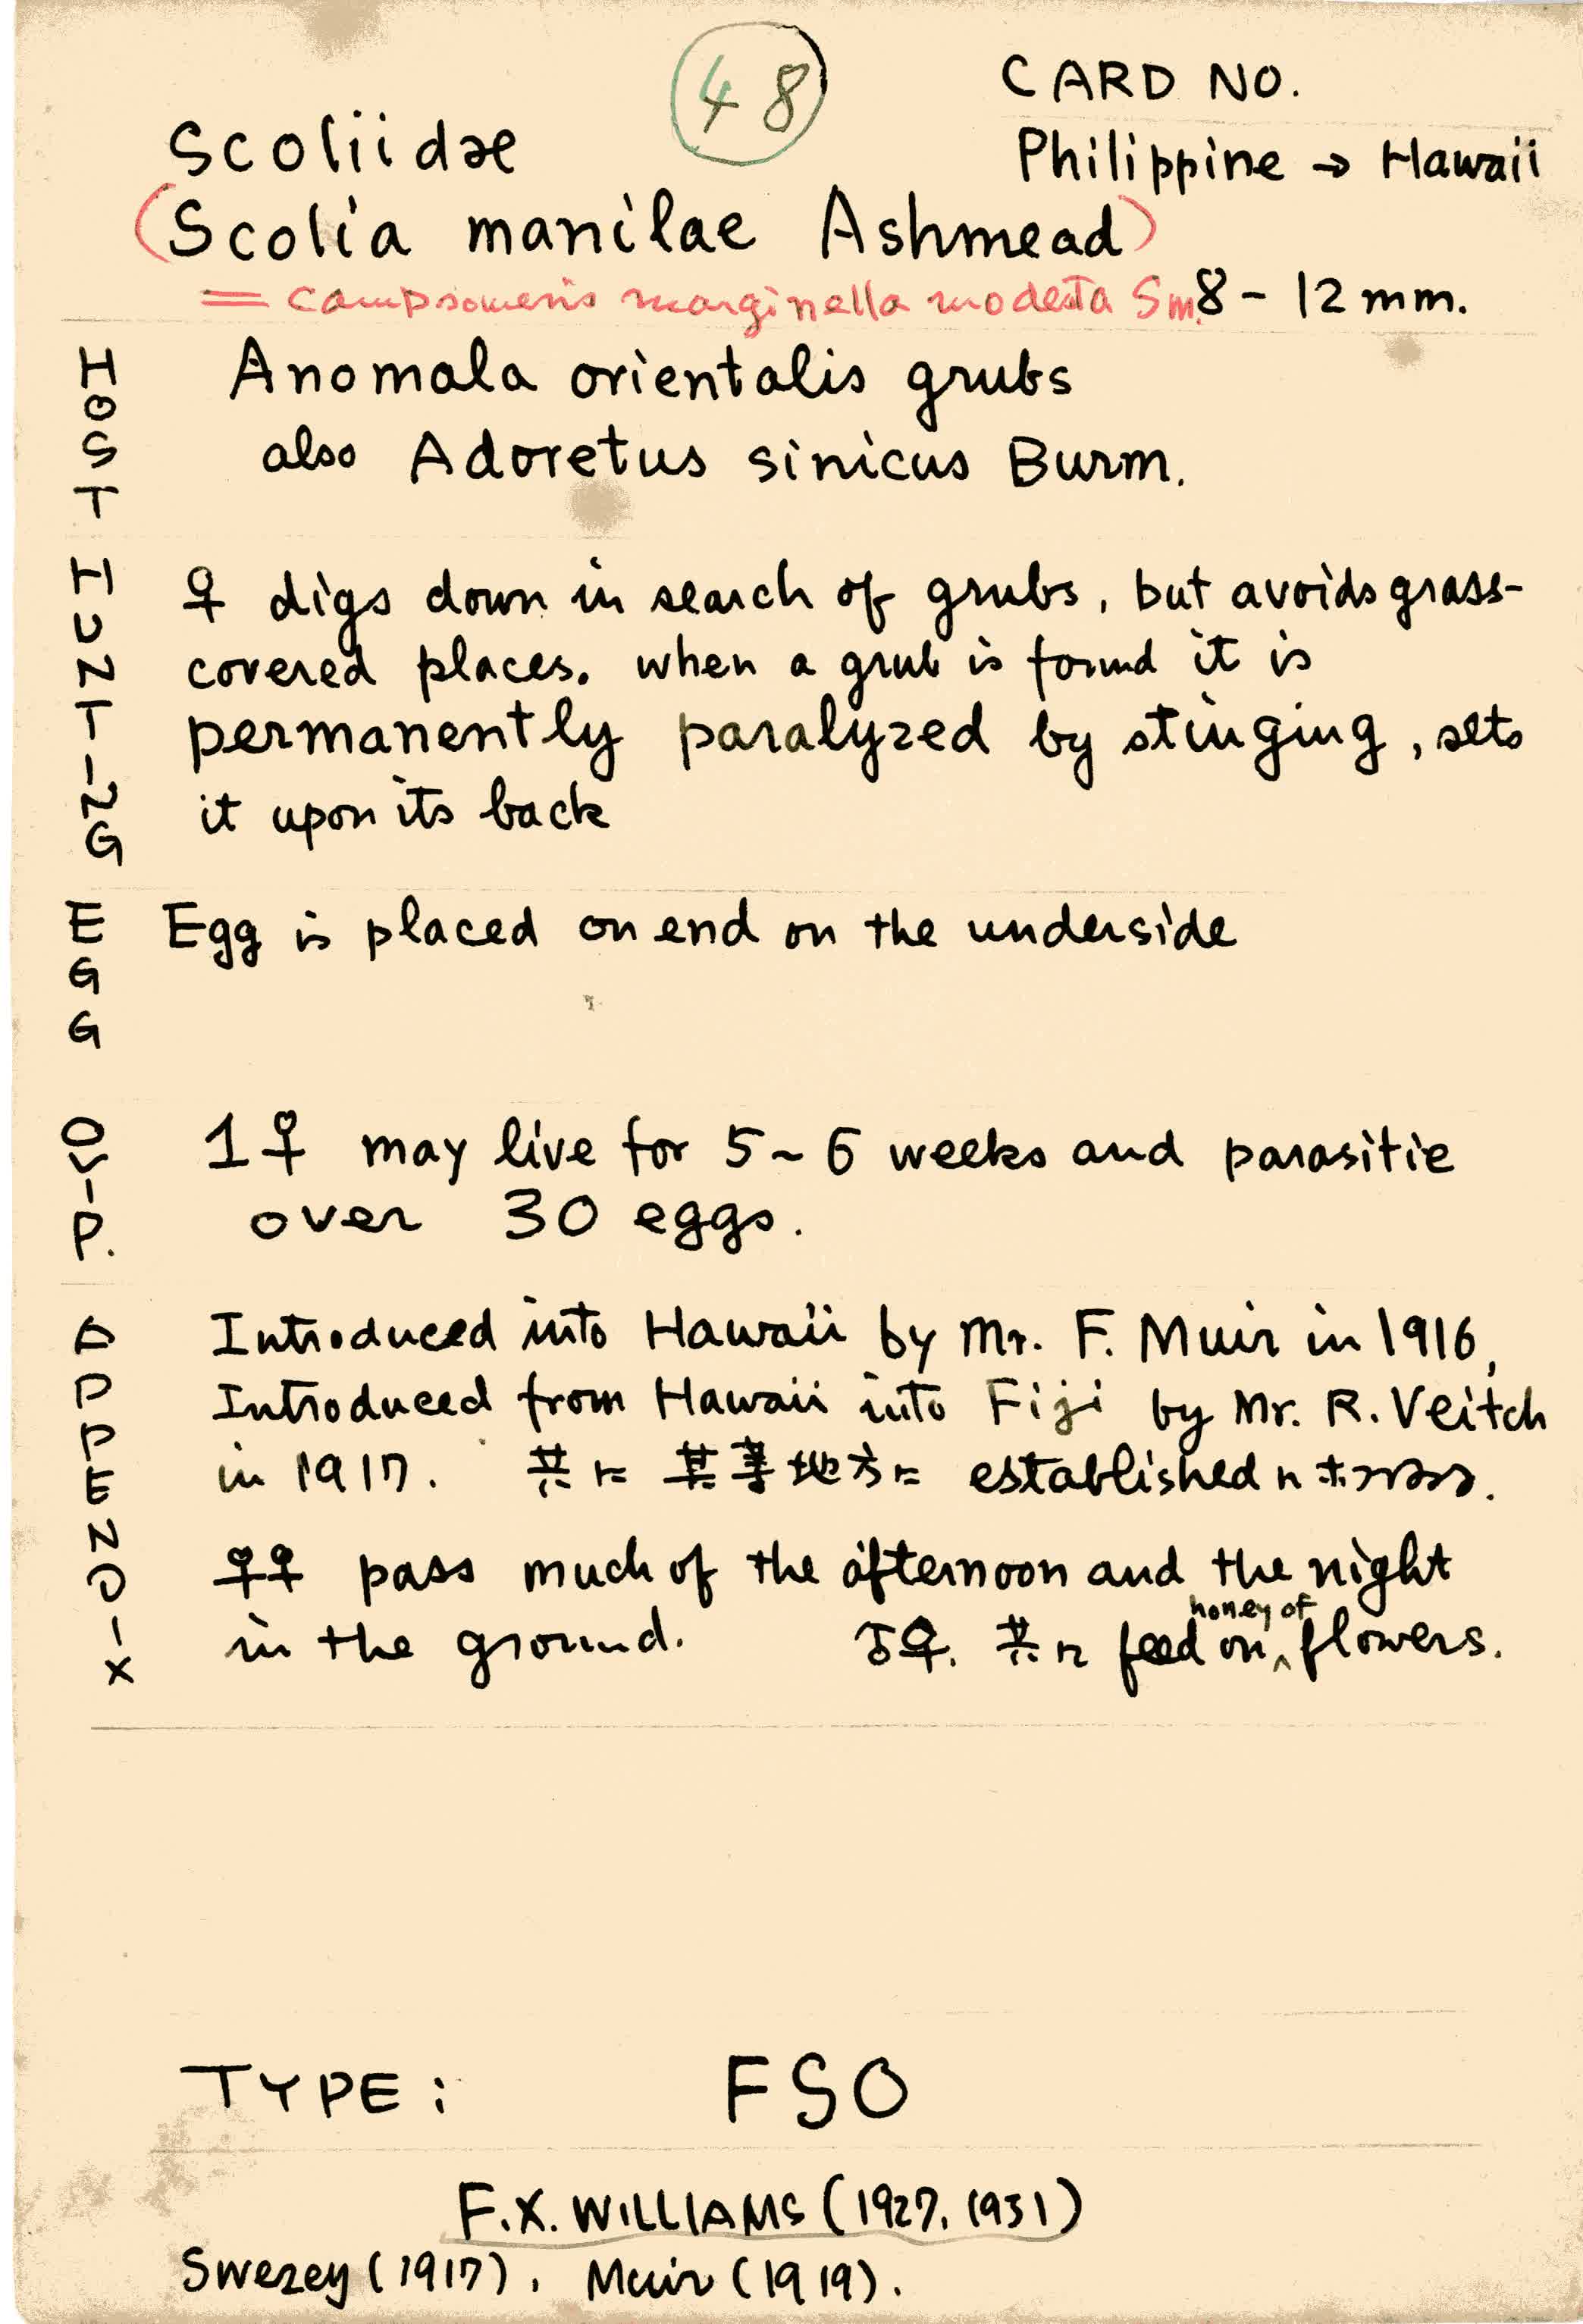 48
CARD NO.
Scoliidae
Philippine → Hawaii
(Scolia manilae Ashmead)
= Campsomeris marginella modesta Sm. 8 - 12 mm.
HOST
Anomala orientalis grubs
also Adoretus sinicus Burm.
HUNTING
♀ digs down in search of grubs, but avoids grass-
covered places. when a grub is found it is
permanently paralyzed by stinging, sets
it upon its back
EGG
Egg is placed on end on the underside
OVIP.
1♀ may live for 5~6 weeks and parasitie
over 30 eggs.
APPENDIX
Introduced into Hawaii by Mr. F. Muir in 1916,
Introduced from Hawaii into Fiji by Mr. R. Veitch
in 1917. 共に 其等地方に established
♀♀ pass much of the afternoon and the night
in the ground. ♂♀. 共に feed on honey of flowers.
TYPE: FSO
F.X. WILLIAMS (1927, 1931)
Swezey (1917), Muir (1919).